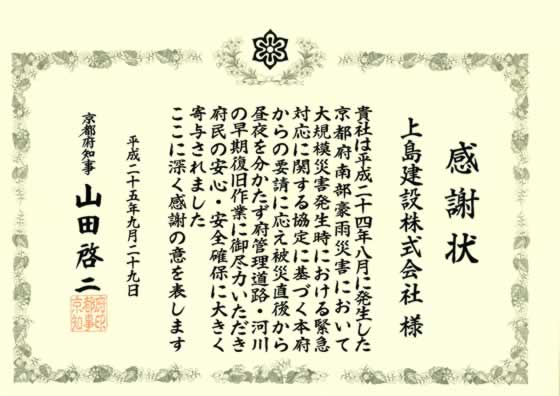 感謝状
上島建設株式会社 様
貴社は平成二十四年八月に発生した
京都府南部豪雨災害において
大規模災害発生時における緊急
対応に関する協定に基づく本府
からの要請に応え被災直後から
昼夜を分かたず府管理道路・河川
の早期復旧作業に御尽力いただき
府民の安心・安全確保に大きく
寄与されました
ここに深く感謝の意を表します
平成二十五年九月二十九日
京都府知事 山田啓二
京都府知事印